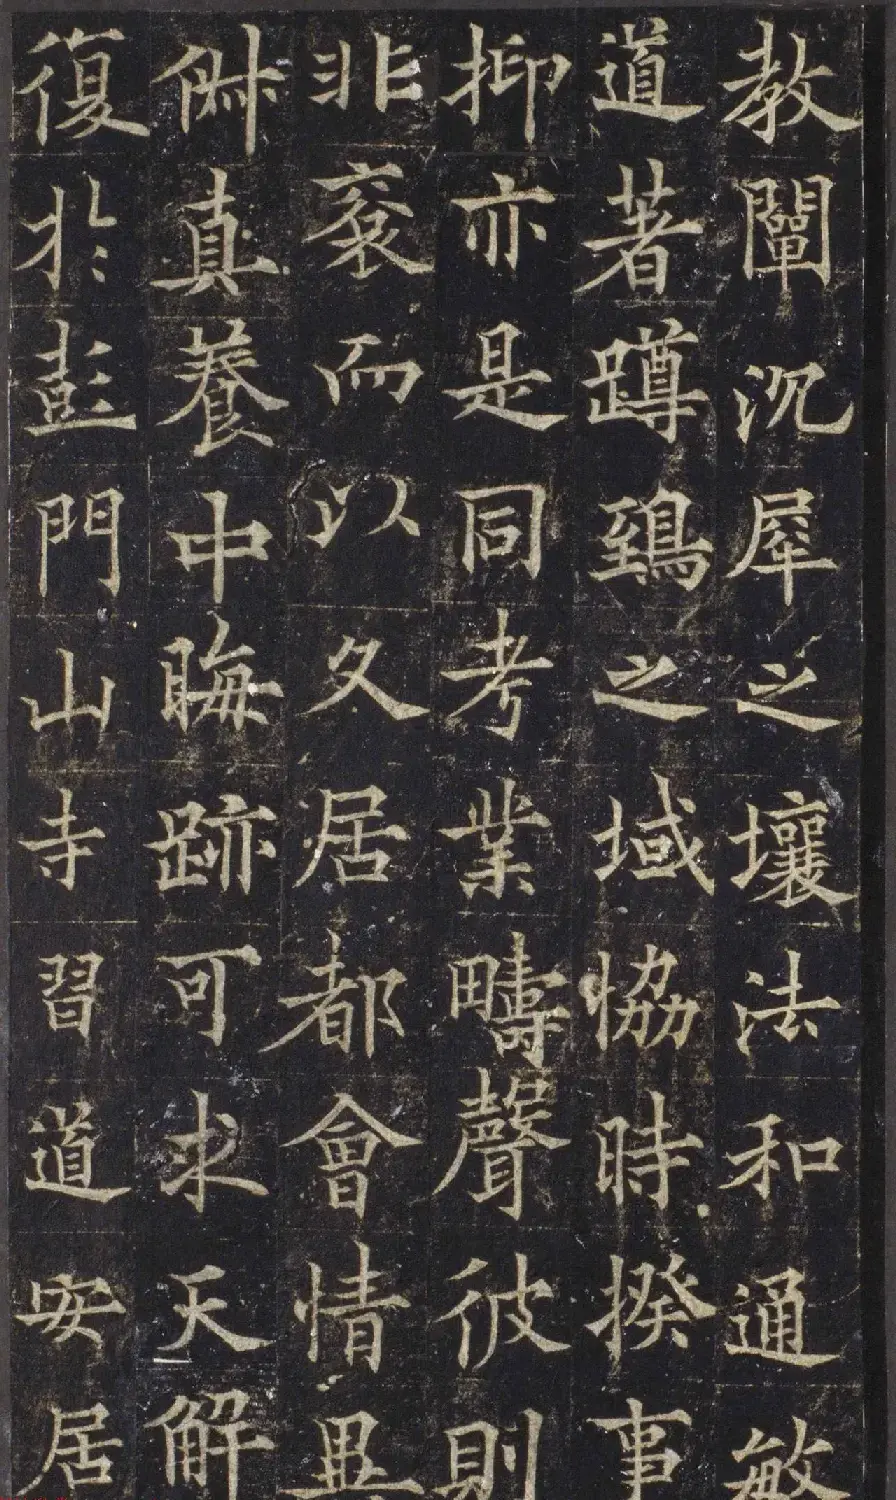 教闡沉犀之壤法和通敏
道著蹲鵄之域協時揆事
抑亦是同考業疇聲彼則
非袞而以久居都會情異
真養中晦跡可求天解
復於彭門山寺習道安居